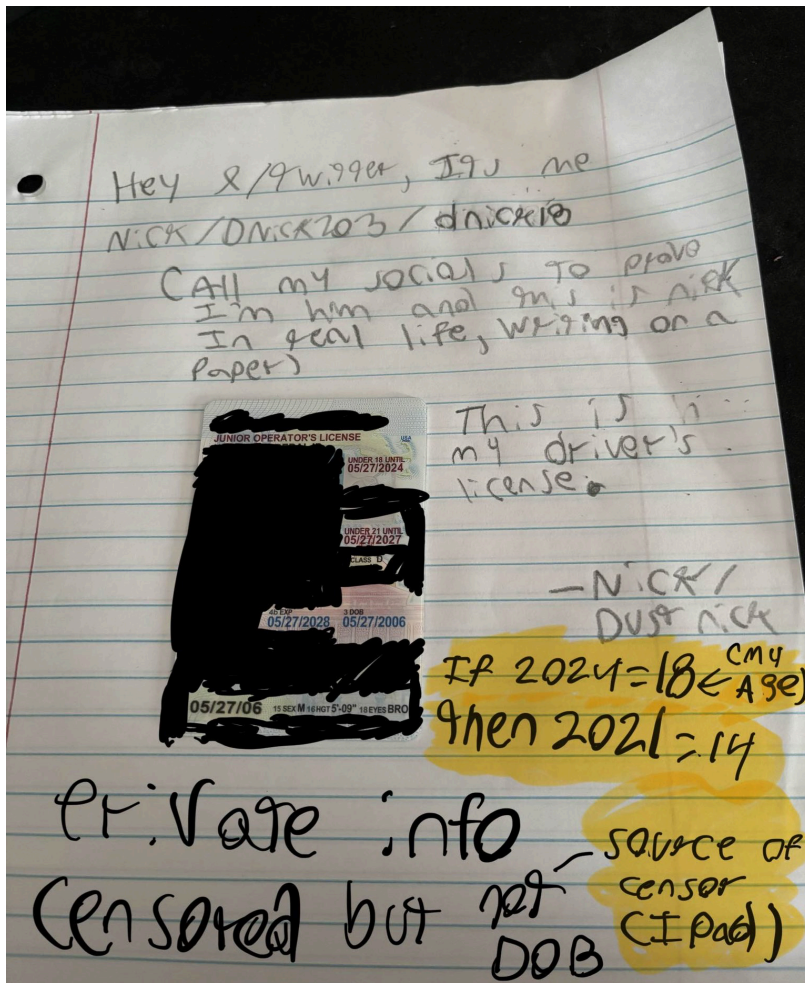 Hey r/Twitter, It's me
Nick/DNick203/dnick18
(All my socials to prove
I'm him and this is nick
In real life, writing on a
Paper)
This is
my driver's
license.
JUNIOR OPERATOR'S LICENSE
USA
UNDER 18 UNTIL
05/27/2024
UNDER 21 UNTIL
05/27/2027
CLASS D
4b EXP
05/27/2028
3 DOB
05/27/2006
05/27/06
15 SEX M 16 HGT 5'-09" 18 EYES BRO
—Nick/
Dust nick
If 2024=18← (My
Age)
then 2021=14
Private info
censored but not
DOB
source of
censor
(IPad)